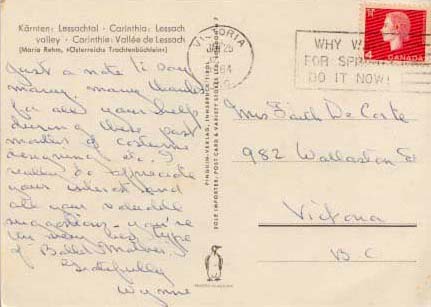 Kärnten: Lessachtal · Carinthia: Lessach
valley · Carinthie: Vallée de Lessach
(Maria Rehm, »Österreichs Trachtenbüchlein«)
Just a note to say
many, many thanks
for all your help
during these past
months of costume
designing etc. I
really do appreciate
your interest and
all your valuable
suggestions – you're
the very best type
of Ballet Mother.
Gratefully
Wynne
PINGUIN-VERLAG, INNSBRUCK/TIROL
SOLE IMPORTER: POST CARD & VARIETY STORES
VICTORIA
25
64
WHY W
FOR SPR
DO IT NOW!
4
CANADA
Mrs Faith De Coste
982 Wollaston St
Victoria
B C